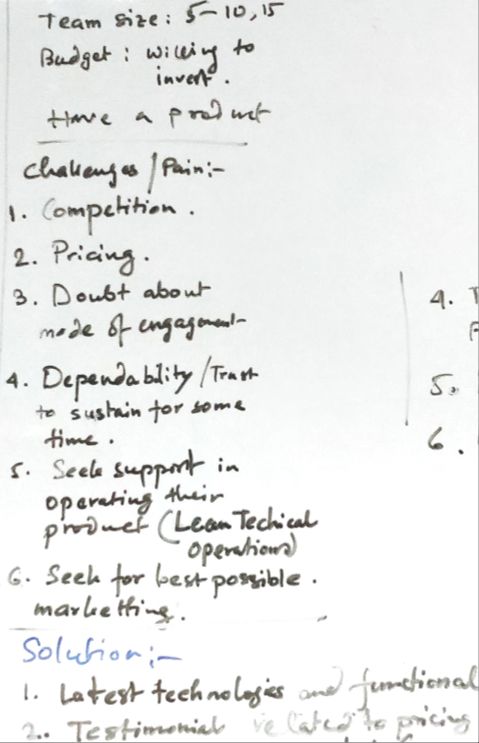 Team size: 5-10, 15
Budget: willing to
invest.
Have a product
Challenges/Pain:-
1. Competition.
2. Pricing.
3. Doubt about
mode of engagement
4. Dependability/Trust
to sustain for some
time.
5. Seek support in
operating their
product (Lean Techical
operations)
6. Seek for best possible.
marketting.
Solution:-
1. Latest technologies and functional
2. Testimonial related to pricing
4.
5.
6.